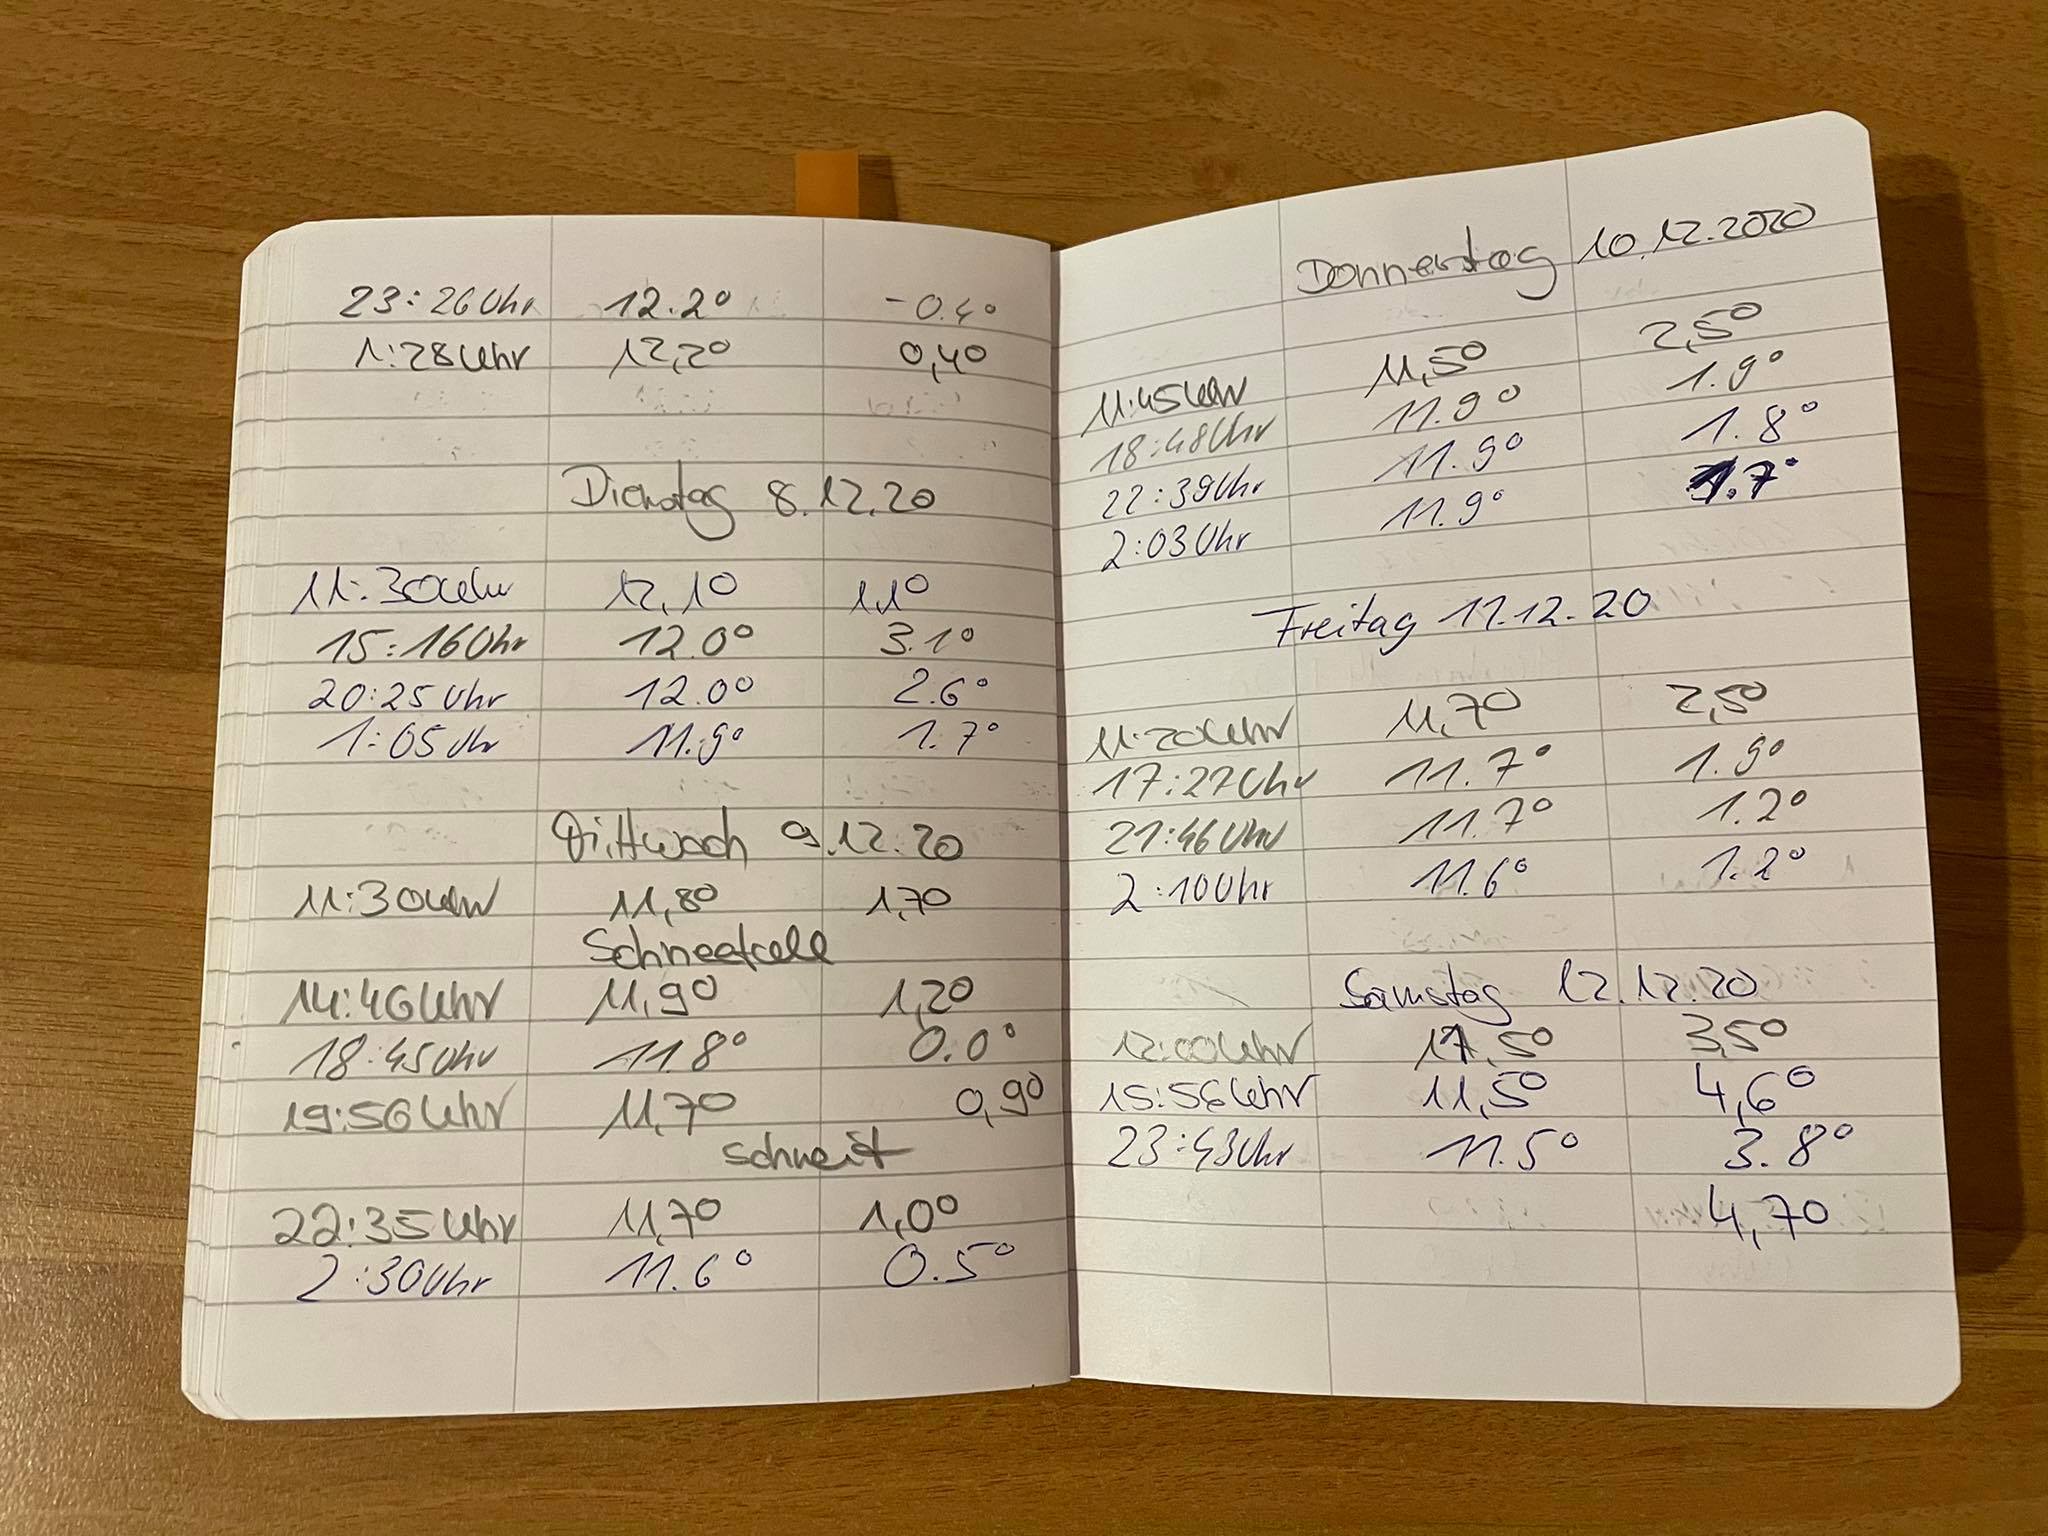 23:26 Uhr 12.2° -0.4°
1:28 Uhr 12,2° 0,4°
Dienstag 8.12.20
11:30 Uhr 12,1° 1,1°
15:16 Uhr 12.0° 3.1°
20:25 Uhr 12.0° 2.6°
1:05 Uhr 11.9° 1.7°
Mittwoch 9.12.20
11:30 Uhr 11,8° 1,7°
14:46 Uhr 11,9° 1,2°
18:45 Uhr 11.8° 0.0°
19:56 Uhr 11,7° 0,9°
schneit
22:35 Uhr 11,7° 1,0°
2:30 Uhr 11.6° 0.5°
Donnerstag 10.12.2020
11:45 Uhr 11,5° 2,5°
18:48 Uhr 11.9° 1.9°
22:39 Uhr 11.9° 1.8°
2:03 Uhr 11.9° 1.7°
Freitag 11.12.20
11:20 Uhr 11,7° 2,5°
17:27 Uhr 11.7° 1.9°
21:46 Uhr 11.7° 1.2°
2:10 Uhr 11.6° 1.2°
Samstag 12.12.20
12:00 Uhr 11,5° 3,5°
15:56 Uhr 11,5° 4,6°
23:43 Uhr 11.5° 3.8°
4,7°